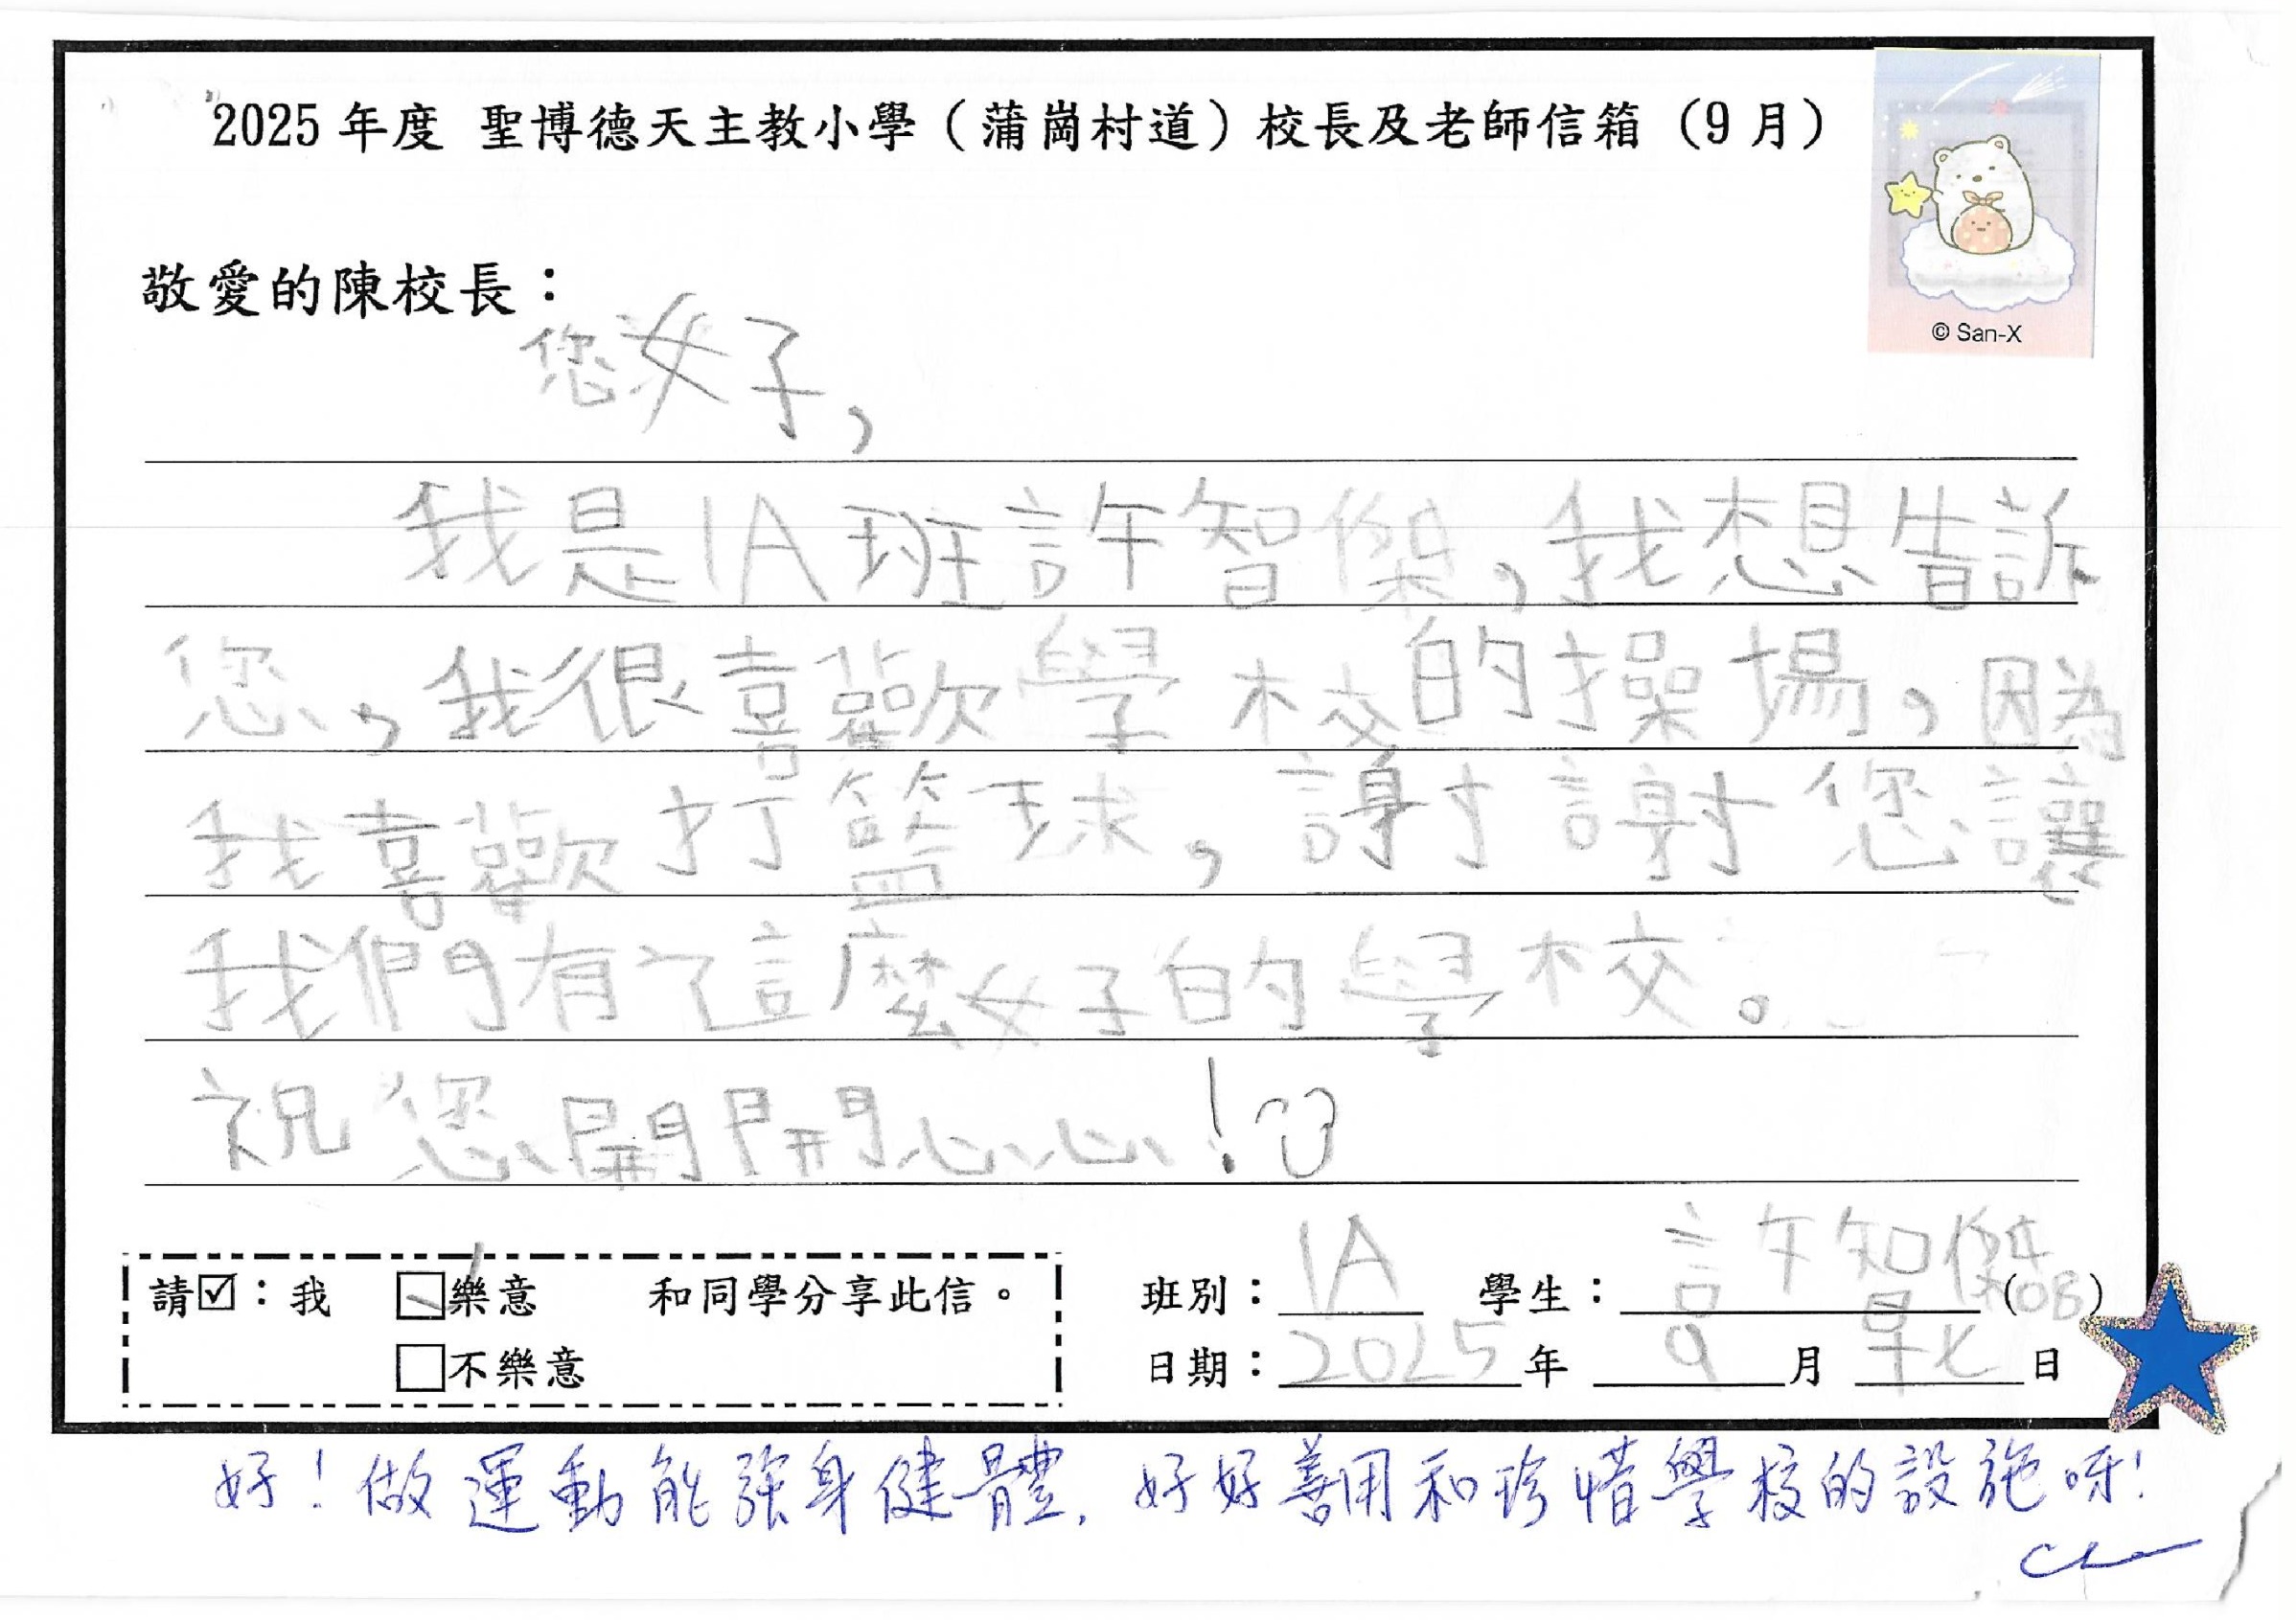 2025 年度 聖博德天主教小學（蒲崗村道）校長及老師信箱（9 月）
© San-X
敬愛的陳校長：
您好，
我是1A班許智傑，我想告訴
您，我很喜歡學校的操場，因為
我喜歡打籃球，謝謝您讓
我們有這麼好的學校。
祝您開開心心！
請☑：我 ☑樂意 和同學分享此信。
□不樂意
班別：1A 學生：許智傑（08）
日期：2025年 9月 日
好！做運動能強身健體，好好善用和珍惜學校的設施呀！